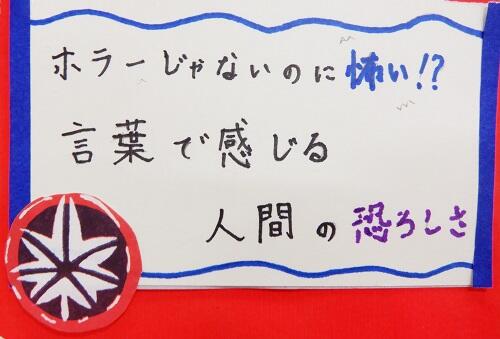 ホラーじゃないのに怖い!?
言葉で感じる
人間の恐ろしさ